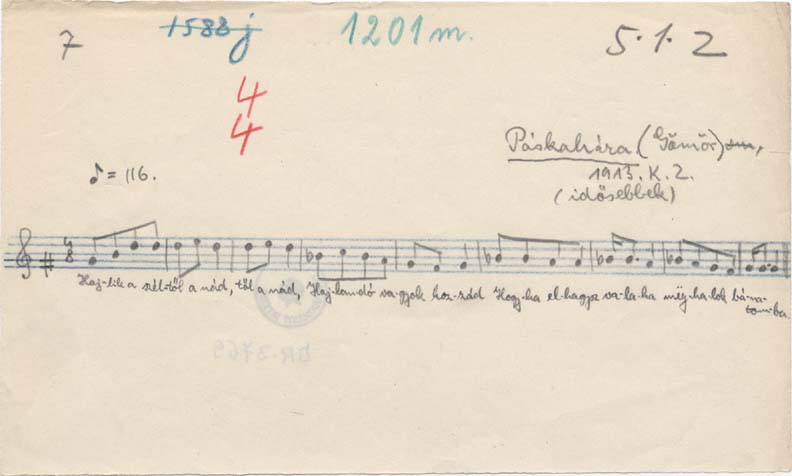 7
1588 j
1201 m.
5.1.2
4
4
Páskaháza (Gömör)
♪ = 116.
1913. K. Z.
(idősebbek)
4
8
Haj-lik a szél-től a nád, től a nád, Haj-landó va-gyok hoz-zád Hogy-ha el-hagysz va-la-ha még-ha-lok bá-na-
tom-ba.
DR. 3769